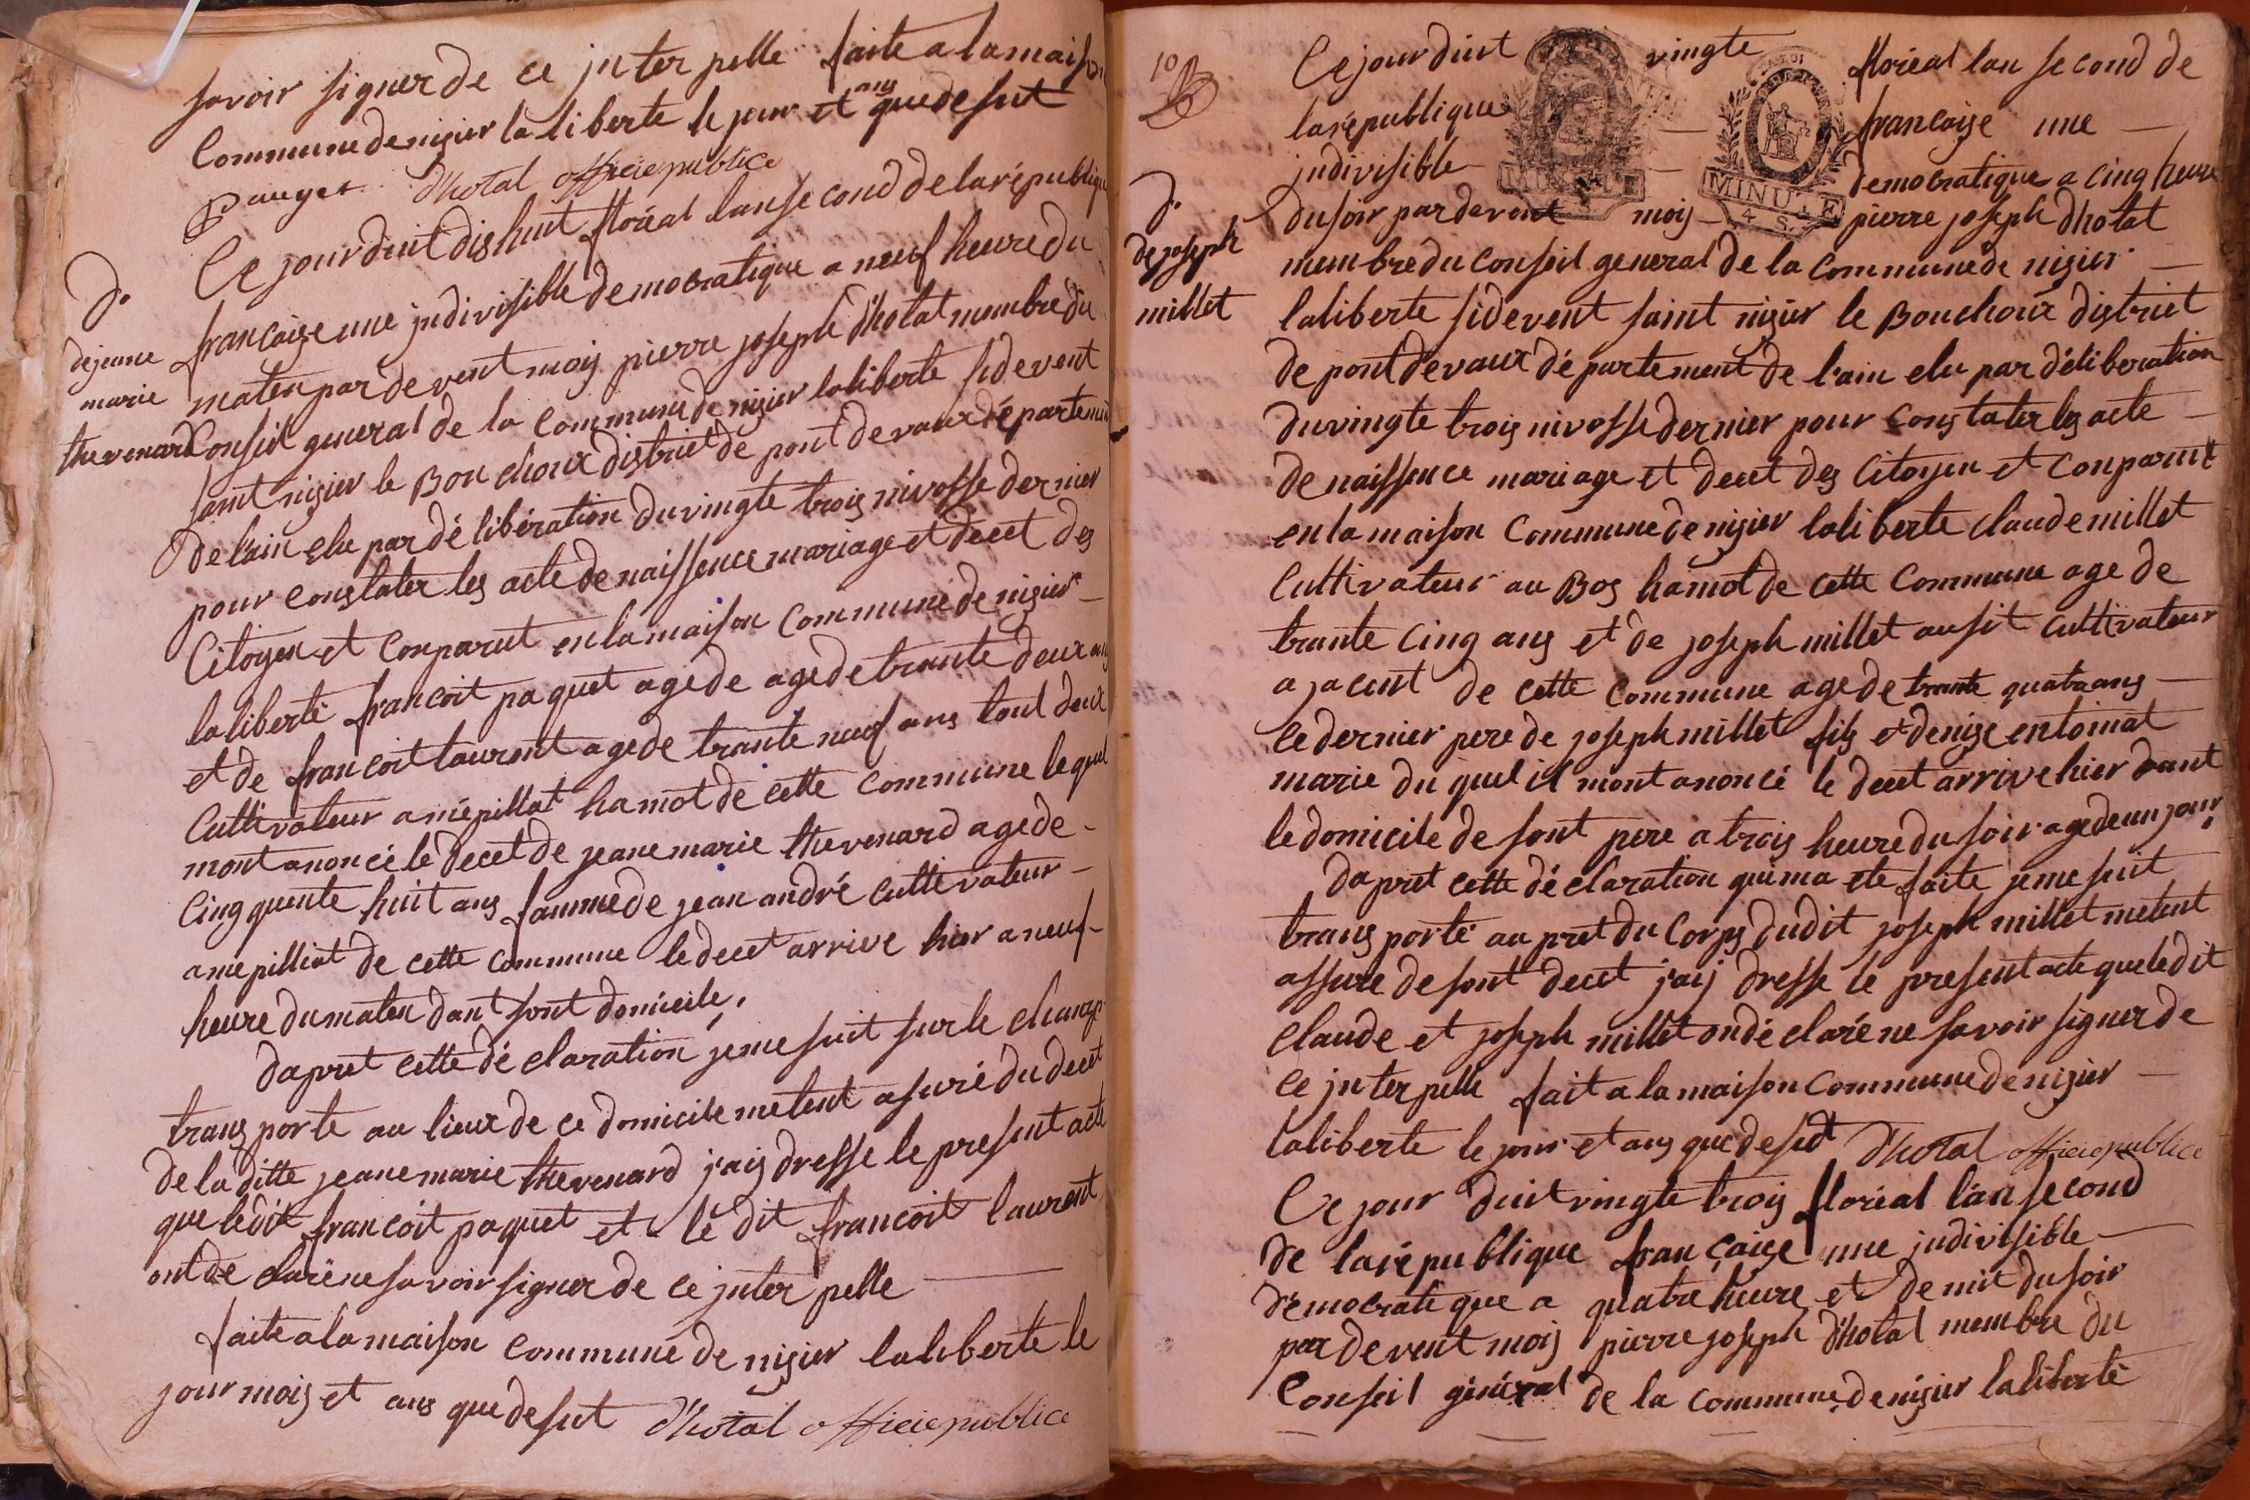 savoir signer de ce jnterpelle faite a la maison
Commune de nizier la liberte le jour et ans que desut
Pauget Dhotal officiepublice
Ce jourduit dishuit floréal lan second de larépublique
D.
de jeane
marie
thevenard
francaize une jndivisible democratique a neuf heure du
maten par devent mois pierre joseph Dhotal membre du
Conseil general de la Commune de nizier laliberte sidevent
saint nizier le Bouchoux district de pont devaux département
De lain elu par délibération du vingte trois nivosse dernier
pour constater les acte de naissence mariage et decet des
Citoyen et Conparut en la maison Commune de nizier
laliberté francoit paquet agede agede trante deux ans
et de francoit laurent agede trante neuf ans tout deux
Cultivateur a mépillat hamot de cette commune lequel
mont anoncé le decet de jeane marie thevenard agede
Cinqquente huit ans famme de jean andré cultivateur
a mepilliat de cette commune le decet arrive hier a neuf
heure du maten dant sont domicile.
Dapret cette déclaration jeme suit sur le champ
transporte au lieux de ce domicile metent asuré du decet
de la ditte jeane marie thevenard jais dresse le present acte
que ledit francoit paquet et le dit francoit laurent
ont declaré ne savoir signer de ce jnterpelle
faite a la maison commune de nizier laliberte le
jour mois et ans que desut Dhotal officiepublice
10
Ce jourduit vingte floréal lan second de
larépublique francaize une
jndivisible democratique a cinq heure
MINUTE
MINUTE
4 S.
D.
de joseph
millet
du soir par devent mois pierre joseph Dhotal
membre du Conseil general de la Commune de nizier
laliberte sidevent saint nizier le Bouchoux district
de pont devaux département de l'ain elu par délibération
du vingte trois nivosse dernier pour Constater les acte
de naissence mariage et decet des Citoyen et Conparut
en la maison Commune de nizier laliberte claude millet
Cultivateur au Bos hamot de cette Commune age de
trante Cinq ans et de joseph millet ausit Cultivateur
a jacent de cette Commune agede trante quatre ans
le dernier pere de joseph millet fils et denize entoinat
marie du quel il mont anoncé le decet arrive hier dant
le domicile de sont pere a trois heure du soir agede un jour
Dapret cette déclaration qui ma ete faite jeme suit
transporté au pret du Corps dudit joseph millet metent
assure de sont decet jaij dresse le present acte que le dit
Claude et joseph millet on déclaré ne savoir signer de
ce jnterpelle fait a la maison Commune de nizier
laliberte le jour et ans que desut Dhotal officiepublice
Ce jour duit vingte trois floréal l'an second
de larépublique francaize une jndivisible
démocratique a quatre heure et demit du soir
par devent mois pierre joseph Dhotal membre du
Conseil général de la Commune de nizier laliberté